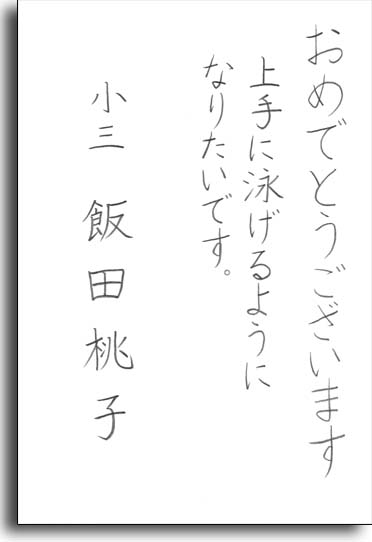 おめでとうございます
上手に泳げるように
なりたいです。
小三 飯田桃子